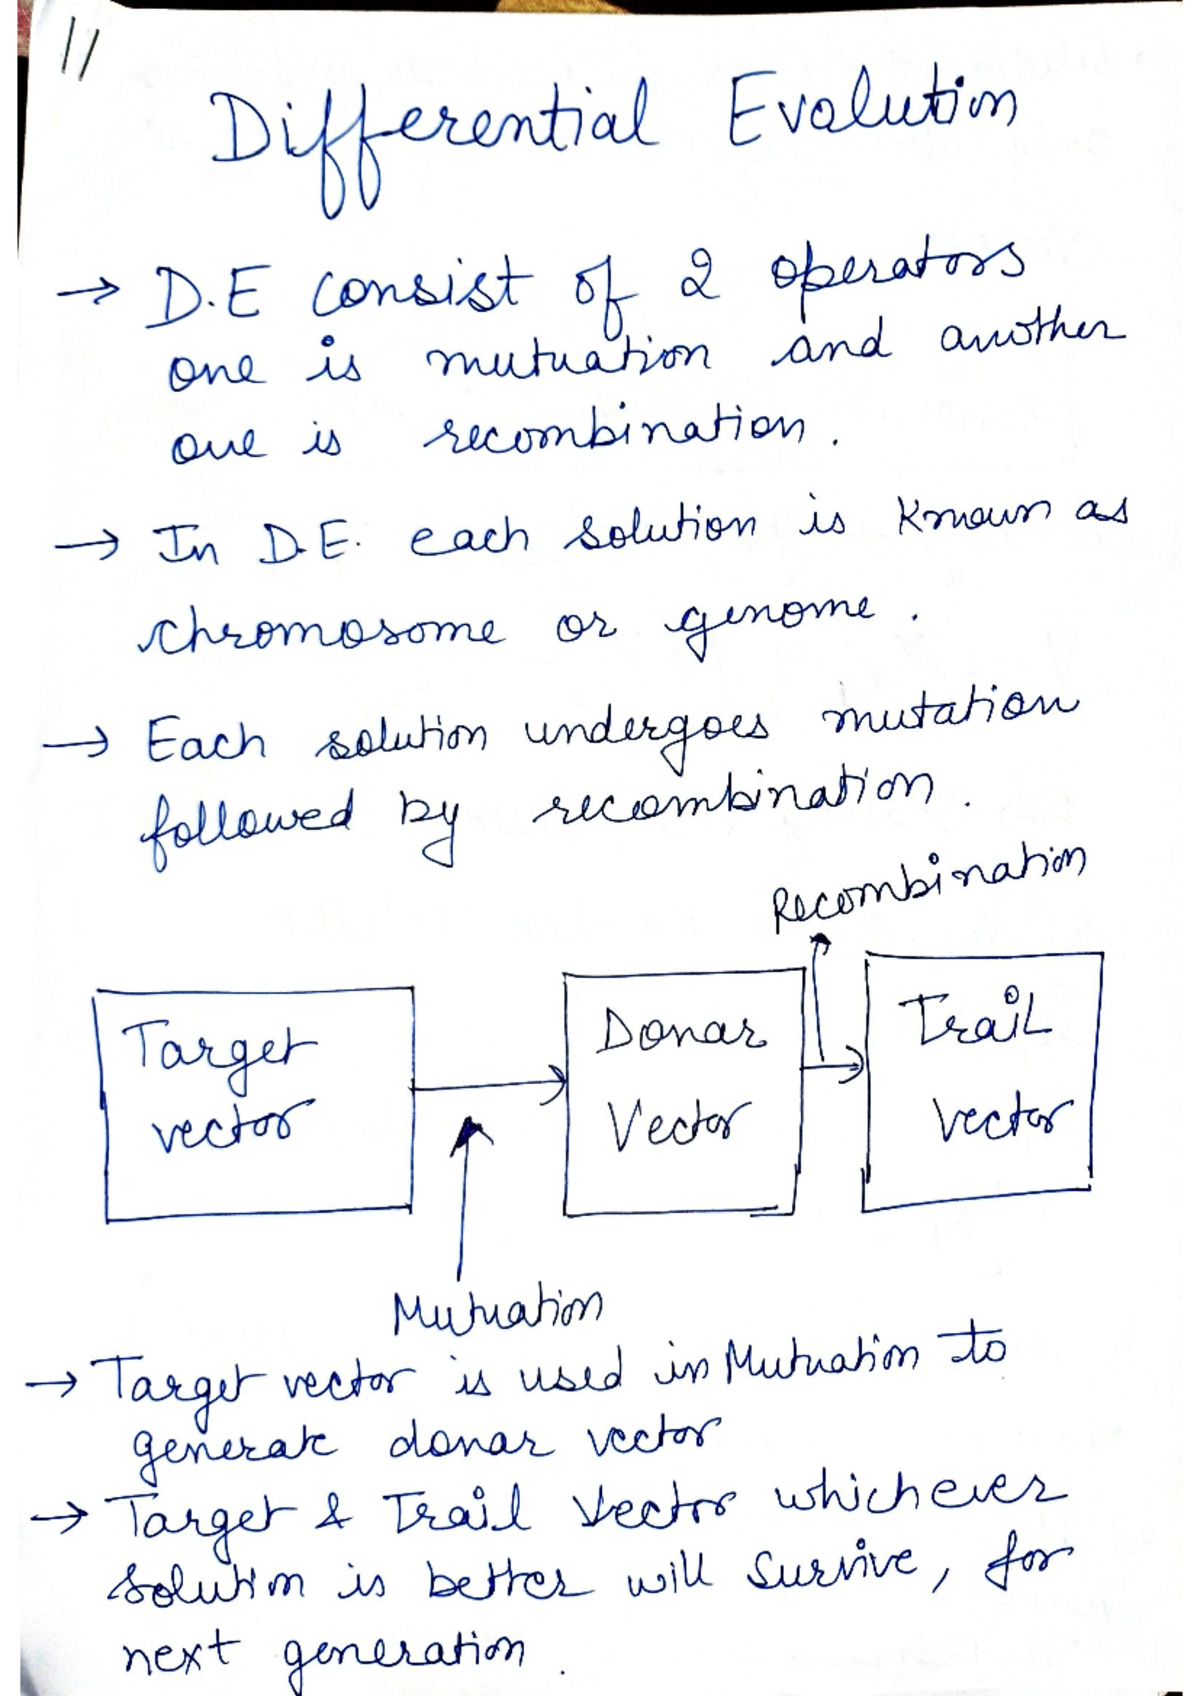 11
Differential Evalution
→ D.E consist of 2 operators
one is mutuation and another
one is recombination.
→ In D.E. each solution is known as
chromosome or genome.
→ Each solution undergoes mutation
followed by recombination.
Recombination
Target
vector
Donar
Vector
Trail
vector
Mutuation
→ Target vector is used in Mutuation to
generate donar vector
→ Target & Trail Vector whichever
solution is better will survive, for
next generation.